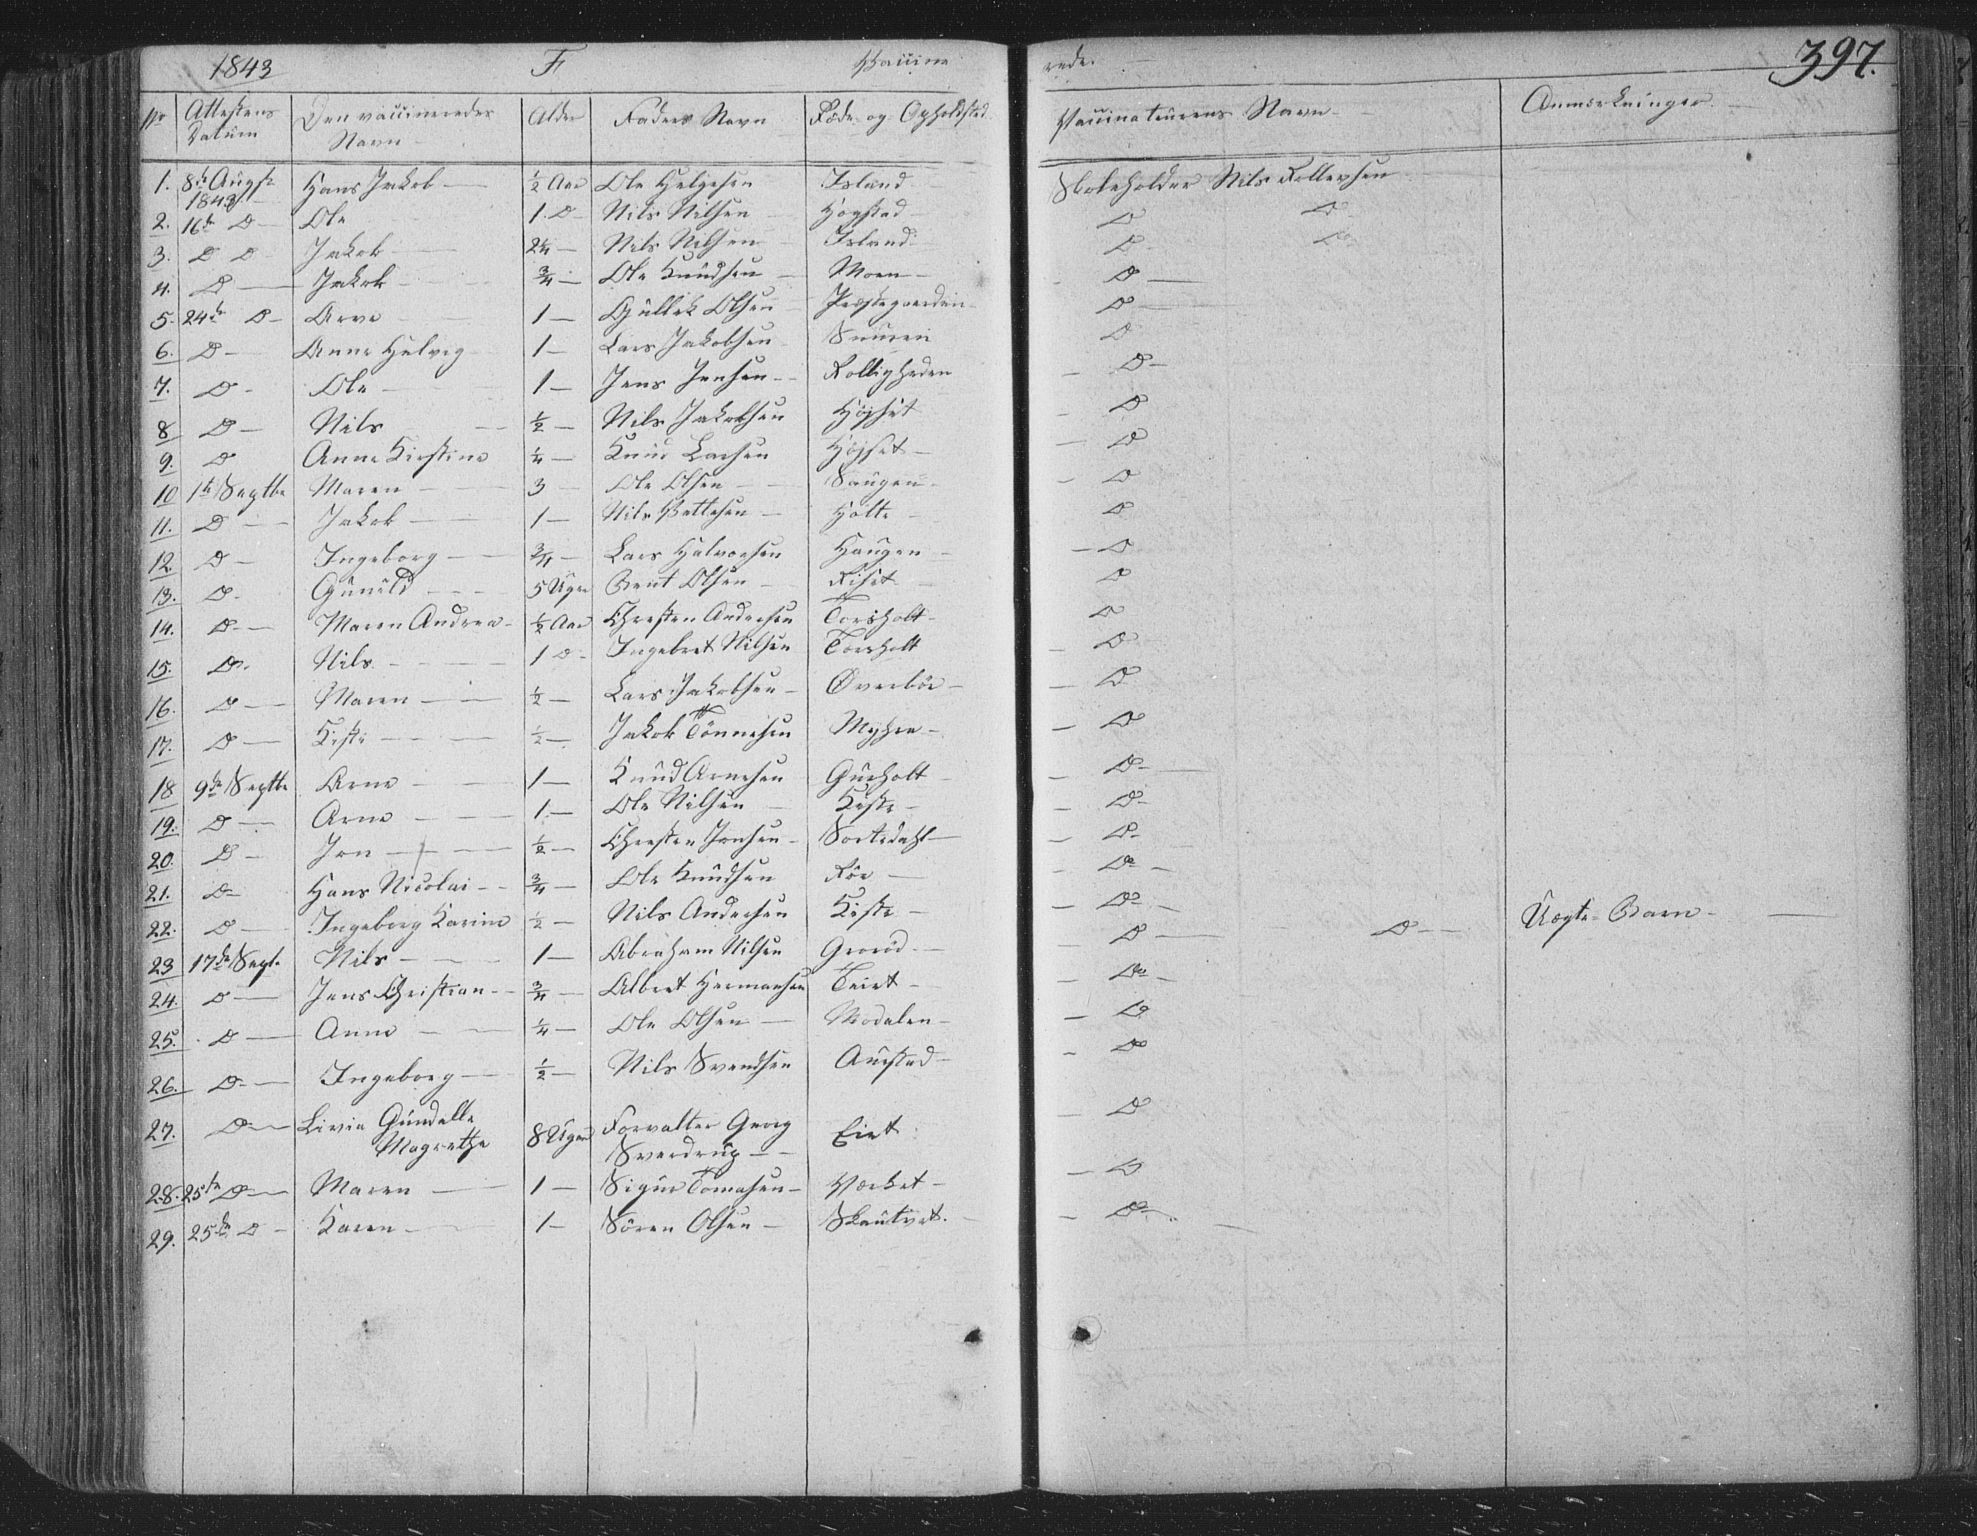 1843 F Vaccine rede. 397.
No Attestens Datum Den vaccineredes Navn Alder Faders Navn Føde- og Opholdsted Vaccinateurens Navn Anmærkninger
1. 8de Augst 1843 Hans Jakob ½ Aar Ole Helgesen Island Skoleholder Nils Tollefsen
2. 16de D Ole 1 D Nils Nilsen Hogstad D D
3. D D Jakob 2¼ Nils Nilsen Island D D
4. D Jakob ¾ Ole Knudsen Moen D
5. 24de D Arne 1 Gullik Olsen Præstegaarden D
6. D Anne Helvig 1 Lars Jakobsen D
7. D Ole 1 Jens Jensen Rolligheden D
8 D Nils ½ Nils Jakobsen Høyset D
9. D Anne Kirstine ¼ Knud Larsen Høyset D
10 1te Septbr Maren 3 Ole Olsen Haugen D
11. D Jakob 1 Nils Pettersen Holte D
12. D Ingeborg ¾ Lars Halvorsen Haugen D
13. D Gunild 5 Uger Bent Olsen Riset D
14. D Maren Andrea ½ Aar Christen Andersen Torsholt D
15. D Nils 1 D Ingebret Nilsen Torsholt D
16. D Maren ½ Lars Jakobsen Overbøe D
17. D Kisti ½ Jakob Tønnesen Myhre D
18 9de Septbr Arne 1 Knud Arnesen Gurholt D
19. D Arne 1 Ole Nilsen Kiste D
20. D Jon ½ Christen Jonsen Sortedahl D
21. D Hans Nicolai ¾ Ole Knudsen Røe D
22. D Ingeborg Karine ½ Nils Andersen Kiste D D Uægte Barn
23 17de Sept. Nils 1 Abraham Nilsen Grorød D
24. D Jens Christian ¾ Albret Hermansen Teiet D
25. D Anne ¼ Ole Olsen Modalen D
26. D Ingeborg ½ Nils Svendsen Aurstad D
27. D Livia Gundelle Magrethe 8 Uger Forvalter Georg Sverdrup Eiet D
28. 25de D Maren 1 Sigur Tomasen Værket D
29. 25de D Karen 1 Søren Olsen Skautvet. D